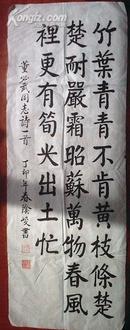 竹葉青青不肯黄枝條楚
楚耐嚴霜昭蘇萬物春風
裡更有筍尖出土忙
董必武同志詩一首 丁卯年春陰岐書